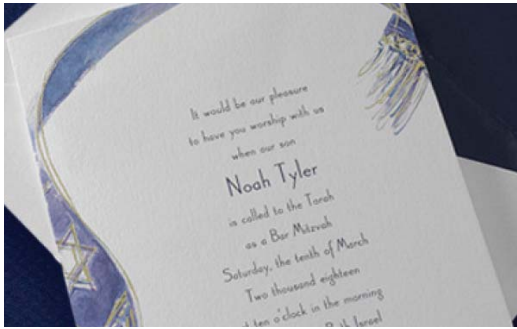 It would be our pleasure
to have you worship with us
when our son
Noah Tyler
is called to the Torah
as a Bar Mitzvah
Saturday, the tenth of March
Two thousand eighteen
at ten o'clock in the morning
Beth Israel